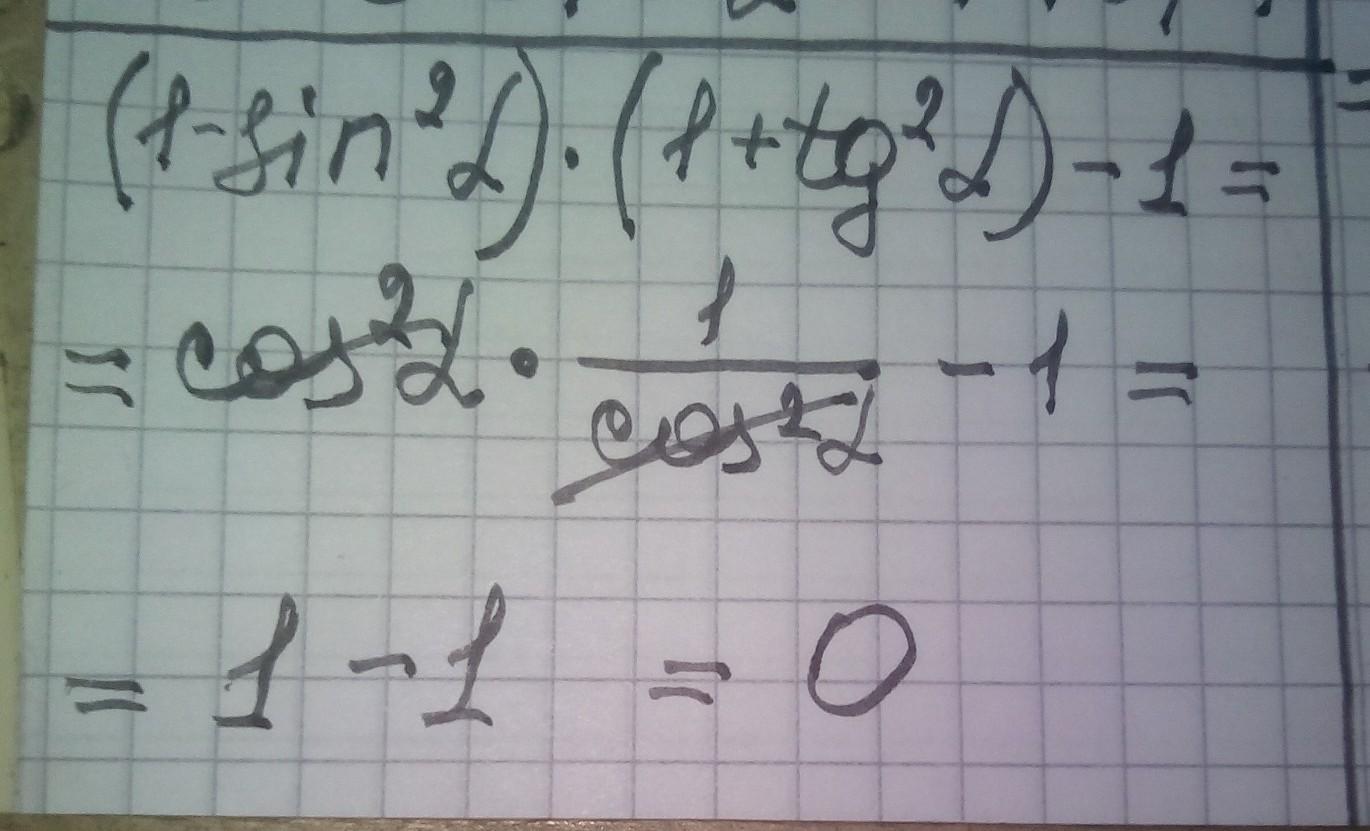 (1-sin²α)·(1+tg²α)-1=
=cos²α·1/cos²α-1=
=1-1=0